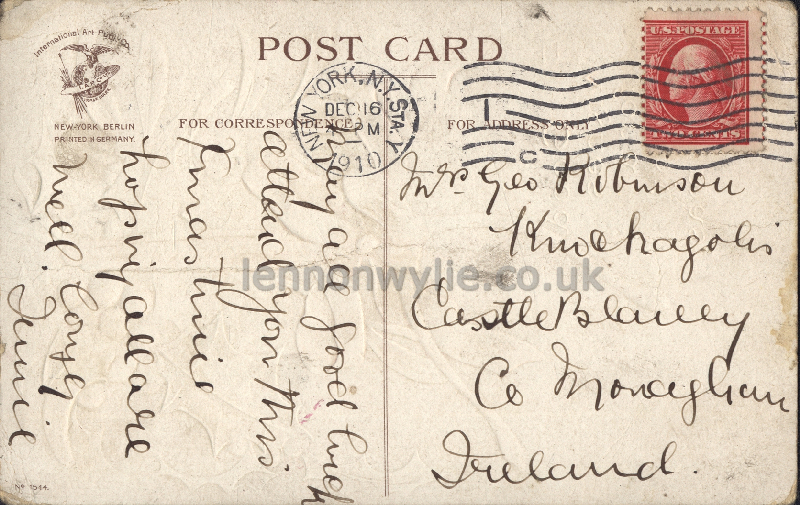 International Art Publ. Co.
NEW-YORK BERLIN
PRINTED IN GERMANY.
POST CARD
FOR CORRESPONDENCE
FOR ADDRESS ONLY
NEW YORK, N.Y. STA. Y
DEC 16
PM
1910
U.S. POSTAGE
TWO CENTS
May all good luck
attend you this
Xmas time
hoping all are
well. Love
Jimie
Mrs Geo Robinson
Knockagolis
Castle Blaney
Co Monaghan
Ireland.
lennonwylie.co.uk
No 1544.